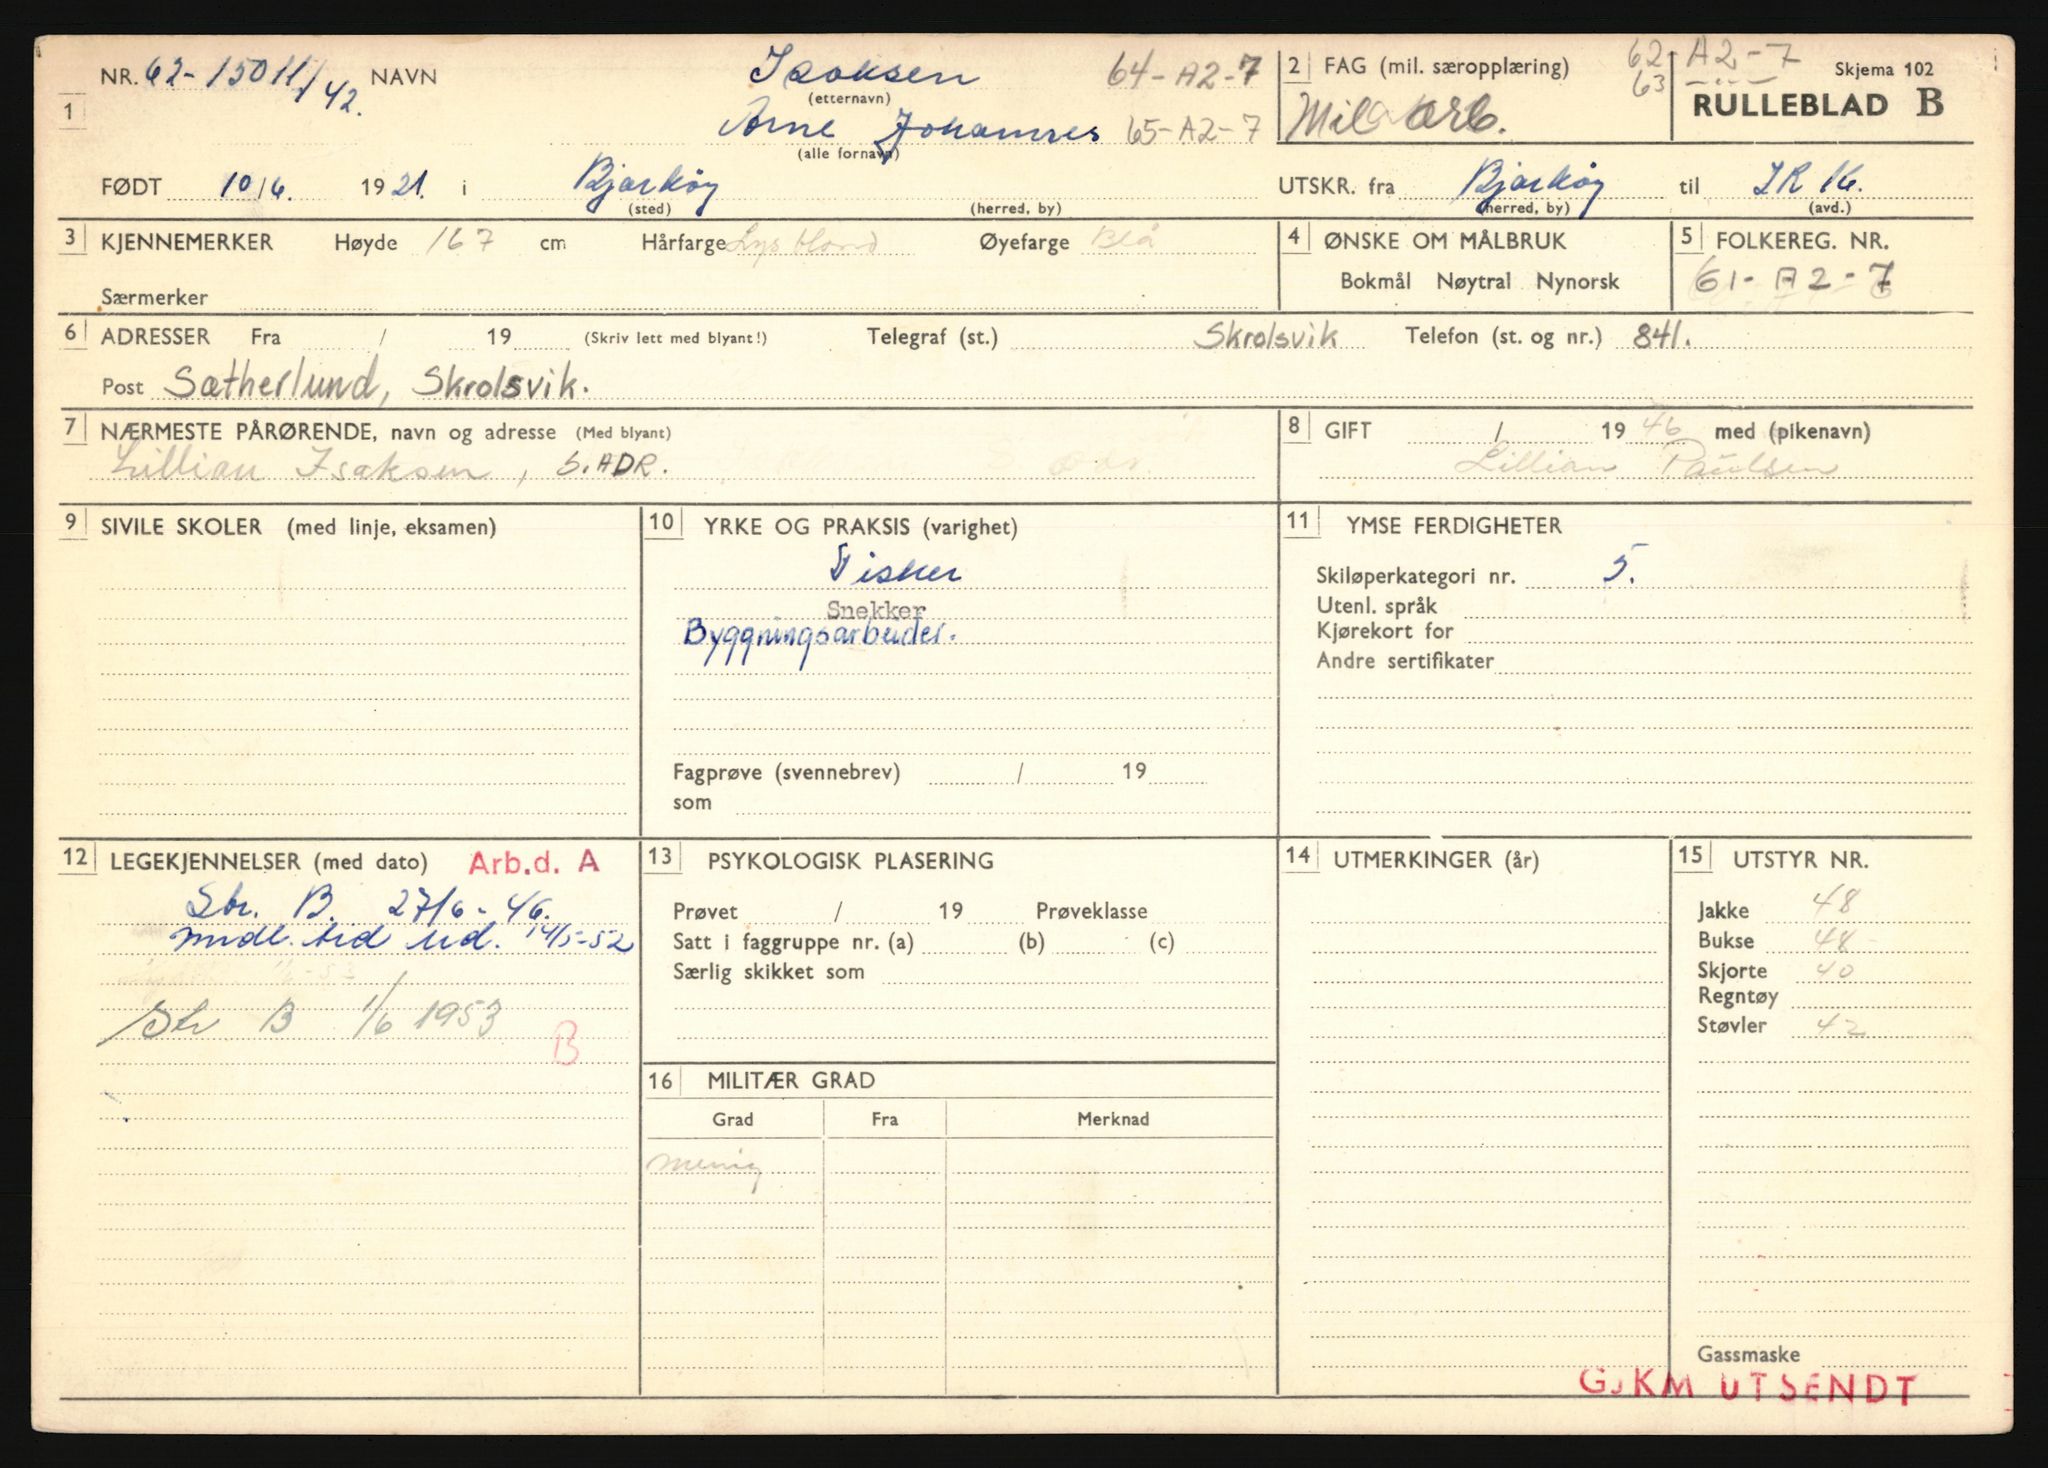 NR. 62-15011/42. NAVN Isaksen 64-A2-7
(etternavn)
1 Arne Johannes 65-A2-7
(alle fornavn)
FØDT 10/6. 1921. i Bjarkøy
(sted) (herred, by)
2 FAG (mil. særopplæring) 62-A2-7 Skjema 102
63
Mil arb. RULLEBLAD B
UTSKR. fra Bjarkøy til IR 16.
(herred, by) (avd.)
3 KJENNEMERKER Høyde 167 cm Hårfarge Lys blond Øyefarge Blå
Særmerker
4 ØNSKE OM MÅLBRUK
Bokmål Nøytral Nynorsk
5 FOLKEREG. NR.
61-A2-7
6 ADRESSER Fra / 19 (Skriv lett med blyant!) Telegraf (st.) Skrolsvik Telefon (st. og nr.) 841.
Post Sætherlund, Skrolsvik.
7 NÆRMESTE PÅRØRENDE, navn og adresse (Med blyant)
Lillian Isaksen, s. ADR.
8 GIFT / 1946 med (pikenavn)
Lillian Paulsen
9 SIVILE SKOLER (med linje, eksamen)
10 YRKE OG PRAKSIS (varighet)
Fisker
Snekker
Byggningsarbeider.
Fagprøve (svennebrev) / 19
som
11 YMSE FERDIGHETER
Skiløperkategori nr. 5.
Utenl. språk
Kjørekort for
Andre sertifikater
12 LEGEKJENNELSER (med dato) Arb.d. A
Str. B. 27/6-46.
midl. tid ud. 14/5-52
Str B 1/6 1953
B
13 PSYKOLOGISK PLASERING
Prøvet / 19 Prøveklasse
Satt i faggruppe nr. (a) (b) (c)
Særlig skikket som
14 UTMERKINGER (år)
15 UTSTYR NR.
Jakke 48
Bukse 48
Skjorte 40
Regntøy
Støvler 42
Gassmaske
16 MILITÆR GRAD
Grad Fra Merknad
menig
GJKM UTSENDT